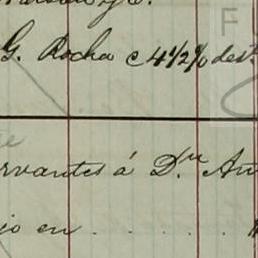 G. Rocha c 4 1/2 % dest
F
rvantes á D.n An
io en . . . . .